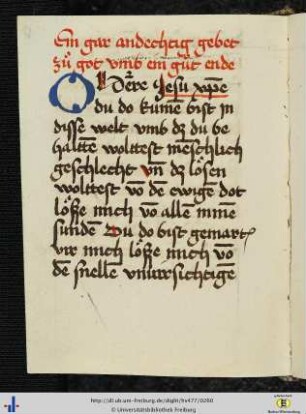 Ein gar andechtig gebet
zů got vmb ein gůt ende
O H'dere Jesu xp̄e
du do kumē bist jn
disse welt vmb dz du be
haltē wolttest mēschlich
geschlecht vn̄ dz lösen
wolttest vō dē ewigē dot
lösse mich vō allē minē
sundē Du do bist gemart'
vir mich lösse mich vō
dē snellē vnuirsichtigē
http://dl.ub.uni-freiburg.de/diglit/hs477/0280
© Universitätsbibliothek Freiburg